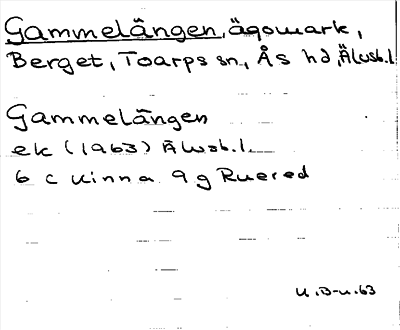 Gammelängen, ägomark,
Berget, Toarps sn., Ås hd, Älvsb.l.
Gammelängen
ek (1963) Älvsb.l.
6 c Kinna 9 g Ruered
U.B-n.63